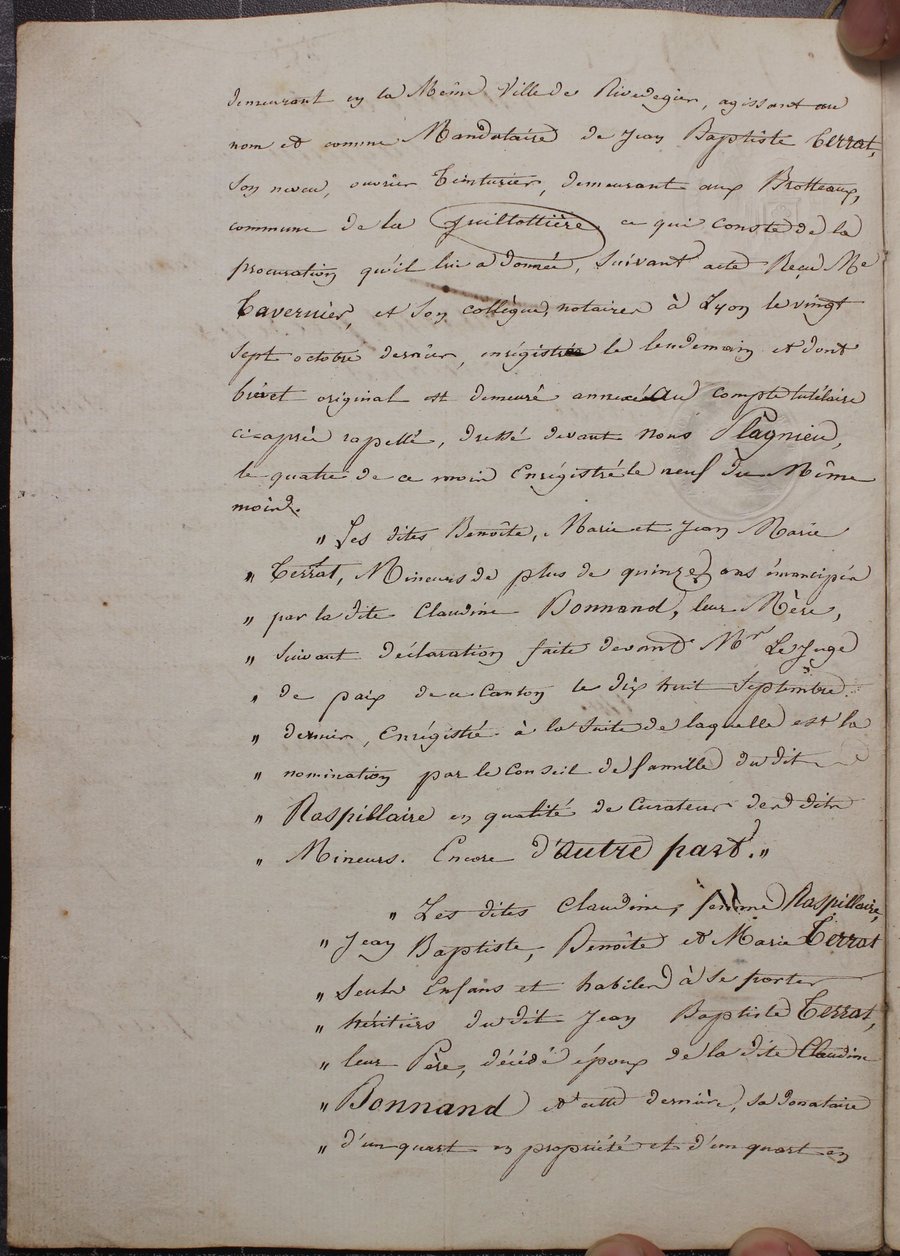 demeurant en la Même Ville de Rivedegier, agissant au
nom et comme Mandataire de Jean Baptiste Terrat,
son neveu, ouvrier Teinturier, demeurant aux Brotteaux,
commune de la Guillottière ce qui conste de la
procuration qu'il lui a donnée, suivant acte Reçu Me
Tavernier, et son collègue, notaires à Lyon le vingt
sept octobre dernier, enrégistrée le lendemain et dont
brévet original est demeuré annexé au compte tutélaire
ci-après rapellé, dressé devant nous Plagnieu,
le quatre de ce mois Enrégistré le neuf du Même
mois.
" Les dites Benoîte, Marie et Jean Marie
" Terrat, Mineurs de plus de quinze ans émancipés
" par la dite Claudine Bonnand, leur Mère,
" suivant déclaration faite devant Mr Le Juge
" de paix de ce Canton le dix huit Septembre
" dernier, Enrégistré à la suite de laquelle est la
" nomination par le Conseil de famille du dit
" Raspillaire en qualité de Curateur des dits
" Mineurs. Encore d'autre part. "
" Les dites Claudine, femme Raspillaire,
" Jean Baptiste, Benoîte et Marie Terrat
" seuls Enfans et habiles à se porter
" héritiers du dit Jean Baptiste Terrat,
" leur Père, décédé époux de la dite Claudine
" Bonnand et cette dernière, sa donataire
" d'un quart en propriété et d'un quart en